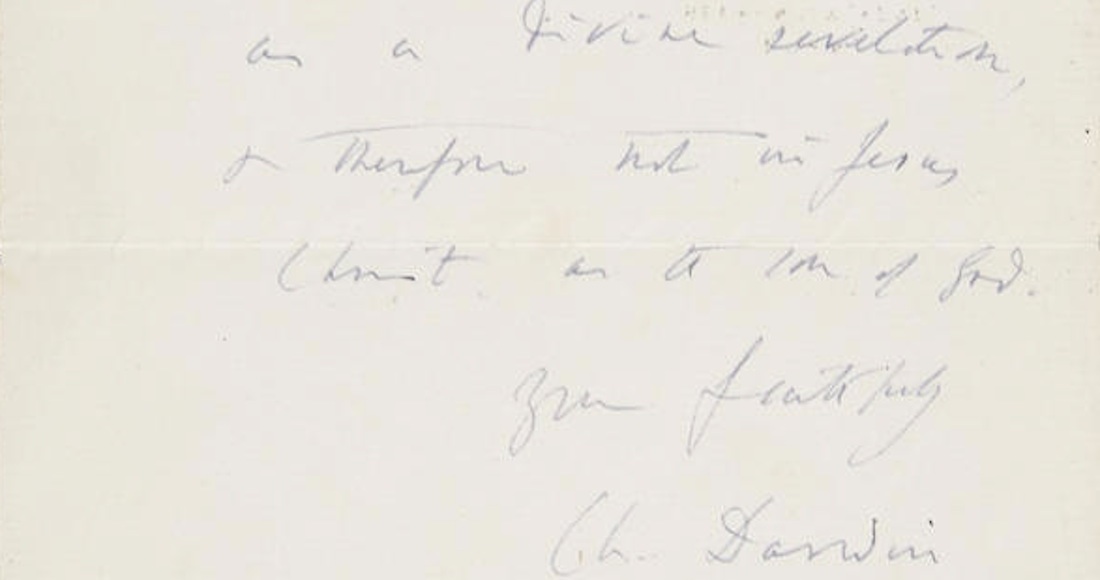 as a divine revelation,
& therefore not in Jesus
Christ as the son of God.
Yours faithfully
Ch. Darwin